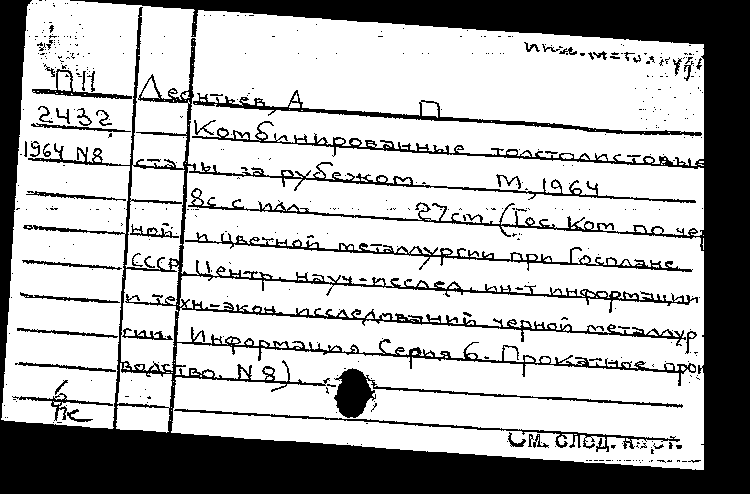 П11 Леонтьев, А П
2432 Комбинированные толстолистовые
1964 N8 станы за рубежом. М., 1964
8с с илл. 27см. (Гос. Ком по чер
ной и цветной металлургии при Госплане
СССР. Центр. науч-исслед. ин-т информации
и техн.-экон. исследований черной металлур-
гии. Информация. Серия 6. Прокатное прои
водство. N8).
См. след. карт.